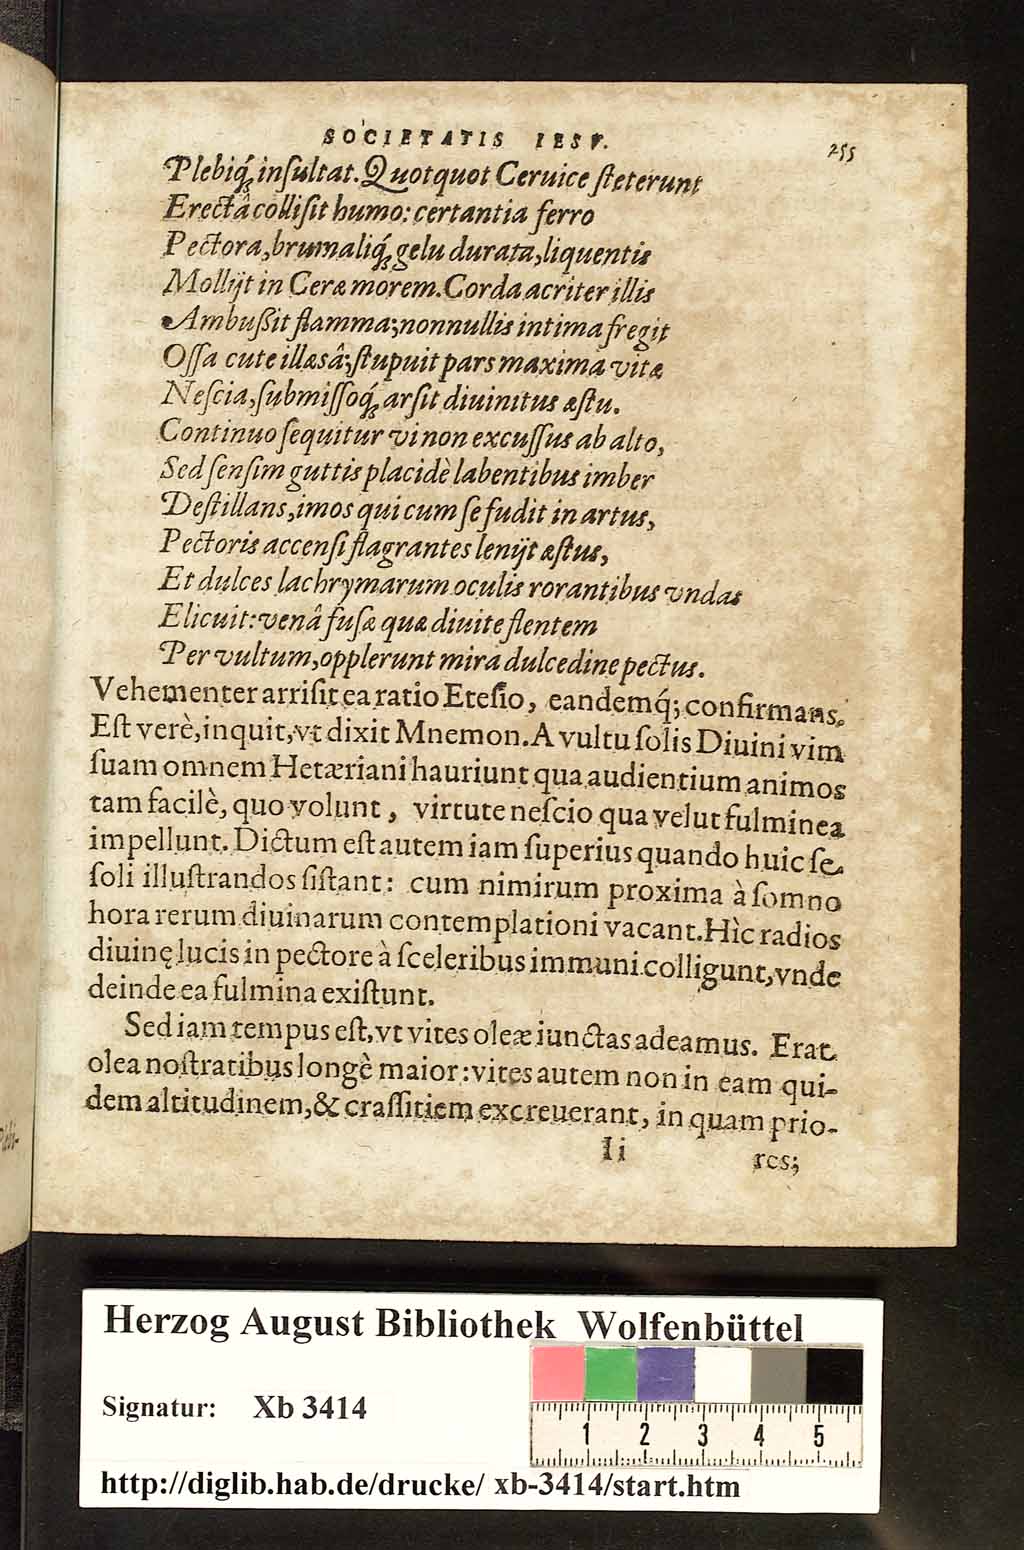 SOCIETATIS IESV. 255
Plebiq́; inſultat. Quotquot Ceruice ſteterunt
Erectâ colliſit humo: certantia ferro
Pectora, brumaliq́; gelu durata, liquentis
Mollijt in Ceræ morem. Corda acriter illis
Ambußit flamma; nonnullis intima fregit
Oſſa cute illæsâ; ſtupuit pars maxima vitæ
Neſcia, ſubmiſſoq́; arſit diuinitus æſtu.
Continuo ſequitur vi non excuſſus ab alto,
Sed ſenſim guttis placidè labentibus imber
Deſtillans, imos qui cum ſe fudit in artus,
Pectoris accenſi flagrantes lenijt æſtus,
Et dulces lachrymarum oculis rorantibus vndas
Elicuit: venâ fuſæ quæ diuite flentem
Per vultum, opplerunt mira dulcedine pectus.
Vehementer arriſit ea ratio Eteſio, eandemq́; confirmans.
Eſt verè, inquit, vt dixit Mnemon. A vultu ſolis Diuini vim
ſuam omnem Hetæriani hauriunt qua audientium animos
tam facilè, quo volunt, virtute neſcio qua velut fulminea
impellunt. Dictum eſt autem iam ſuperius quando huic ſe
ſoli illuſtrandos ſiſtant: cum nimirum proxima à ſomno
hora rerum diuinarum contemplationi vacant. Hìc radios
diuinę lucis in pectore à ſceleribus immuni colligunt, vnde
deinde ea fulmina exiſtunt.
Sed iam tempus eſt, vt vites oleæ iunctas adeamus. Erat
olea noſtratibus longè maior: vites autem non in eam qui-
dem altitudinem, & craſſitiem excreuerant, in quam prio-
Ii res;
Herzog August Bibliothek Wolfenbüttel
Signatur: Xb 3414
1 2 3 4 5
http://diglib.hab.de/drucke/ xb-3414/start.htm